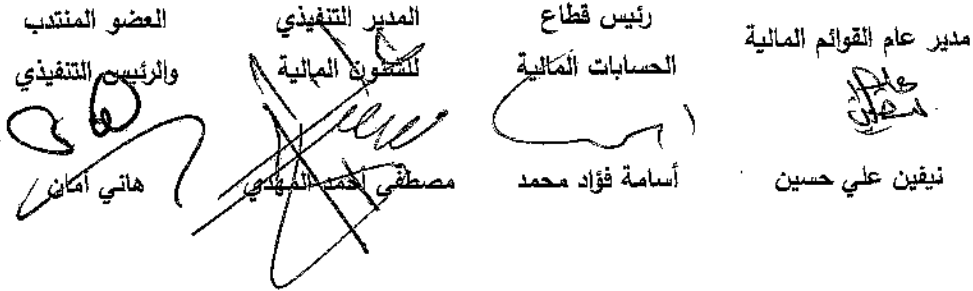 مدير عام القوائم المالية
نيفين علي حسين
رئيس قطاع
الحسابات المالية
أسامة فؤاد محمد
المدير التنفيذي
للشئون المالية
مصطفى احمد المهدي
العضو المنتدب
والرئيس التنفيذي
هاني أمان